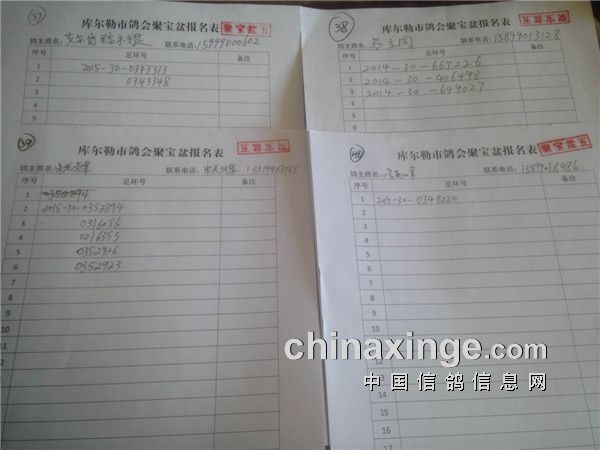 37
库尔勒市鸽会聚宝盆报名表
聚宝盆五
鸽主姓名:
联系电话: 15999000602
序号 足环号 备注
1 2015-30-0343313
2 0343348
3
4
5
38
库尔勒市鸽会聚宝盆报名表
鸽主姓名:
联系电话: 15899013128
序号 足环号 备注
1 2014-30-667226
2 2014-30-406498
3 2014-30-649027
4
5
39
库尔勒市鸽会聚宝盆报名表
鸽主姓名:
联系电话:
序号 足环号 备注
1
2 2015-30-0352894
3 0316056
4 0016353
5 0352928
6 0352923
7
8
9
10
11
12
13
14
15
16
40
库尔勒市鸽会聚宝盆报名表
聚宝盆五
鸽主姓名:
联系电话: 13899018986
序号 足环号 备注
1 2015-30-0348220
2
3
4
5
6
7
8
9
10
11
12
13
14
15
16
17
chinaxinge.com
中国信鸽信息网